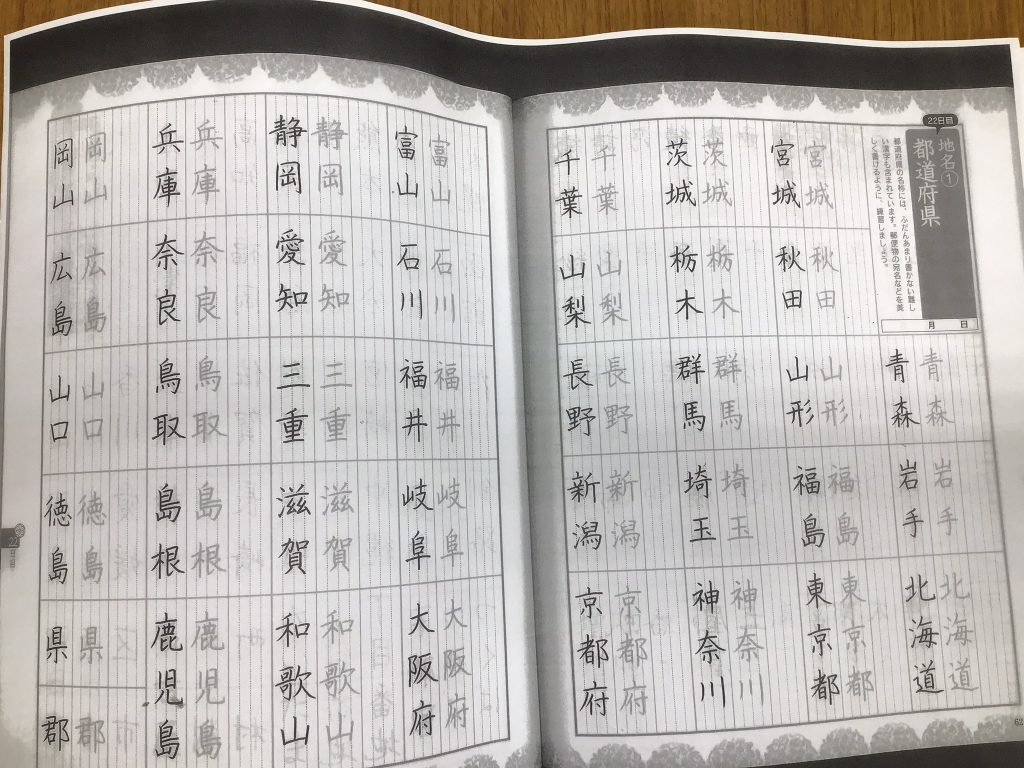 22日目
地名①
都道府県
都道府県の名称には、ふだんあまり書かない難し
い漢字も含まれています。郵便物の宛名などを美
しく書けるように、練習しましょう。
月 日
青森 岩手 北海道
青森 岩手 北海道
宮城 秋田 山形 福島 東京都
宮城 秋田 山形 福島 東京都
茨城 栃木 群馬 埼玉 神奈川
茨城 栃木 群馬 埼玉 神奈川
千葉 山梨 長野 新潟 京都府
千葉 山梨 長野 新潟 京都府
富山 石川 福井 岐阜 大阪府
富山 石川 福井 岐阜 大阪府
静岡 愛知 三重 滋賀 和歌山
静岡 愛知 三重 滋賀 和歌山
兵庫 奈良 鳥取 島根 鹿児島
兵庫 奈良 鳥取 島根 鹿児島
岡山 広島 山口 徳島 県 郡
岡山 広島 山口 徳島 県 郡